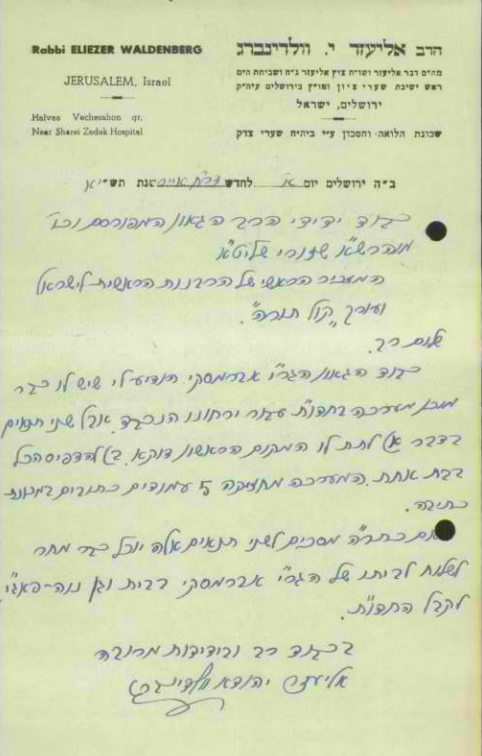 Rabbi ELIEZER WALDENBERG
JERUSALEM, Israel
Halvaa Vechesahon qr.
Near Sharei Zedek Hospital
הרב אליעזר י. וולדינברג
מח״ס דבר אליעזר ושו״ת ציץ אליעזר ג״ח ושביתת הים
ראש ישיבת שערי ציון ומו״ץ בירושלים עיה״ק
ירושלים, ישראל
שכונת הלואה וחסכון ע״י ביה״ח שערי צדק
ב״ה ירושלים יום א׳ לחדש אייר שנת תשי״א
כבוד ידידי הרב הגאון המפורסם וכו׳
מוהרש״א שזורי שליט״א
המזכיר הראשי של הרבנות הראשית לישראל
ועורך ״קול תורה״.
שלום רב.
כבוד הגאון הגר״י אברמסקי הודיע לי שיש לו כבר
מוכן מערכה בחדו״ת עבור ירחונו הנכבד. אבל שני תנאים
בדבר א) לתת לו המקום הראשון דוקא. ב) להדפיס הכל
בבת אחת. המערכה מחזיקה 5 עמודים כתובים במכונת
כתיבה.
אם כתר״ה מסכים לשני תנאים אלה יוכל כבר מחר
לשלוח לביתו של הגר״י אברמסקי בבית וגן
לקבל החדו״ת.
בכבוד רב ובידידות מרובה
אליעזר יהודא וולדינברג